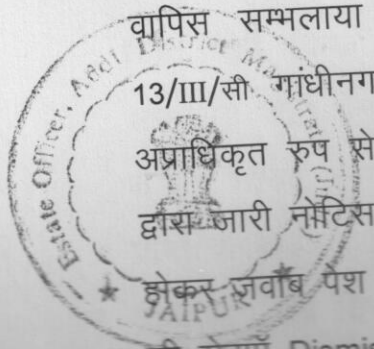 वापिस सम्भलाया
13/III/सी गांधीनग
अप्राधिकृत रुप से
द्वारा जारी नोटिस
होकर जवाब पेश
Dismi
Estate Officer, Addl District Magistrate
JAIPUR